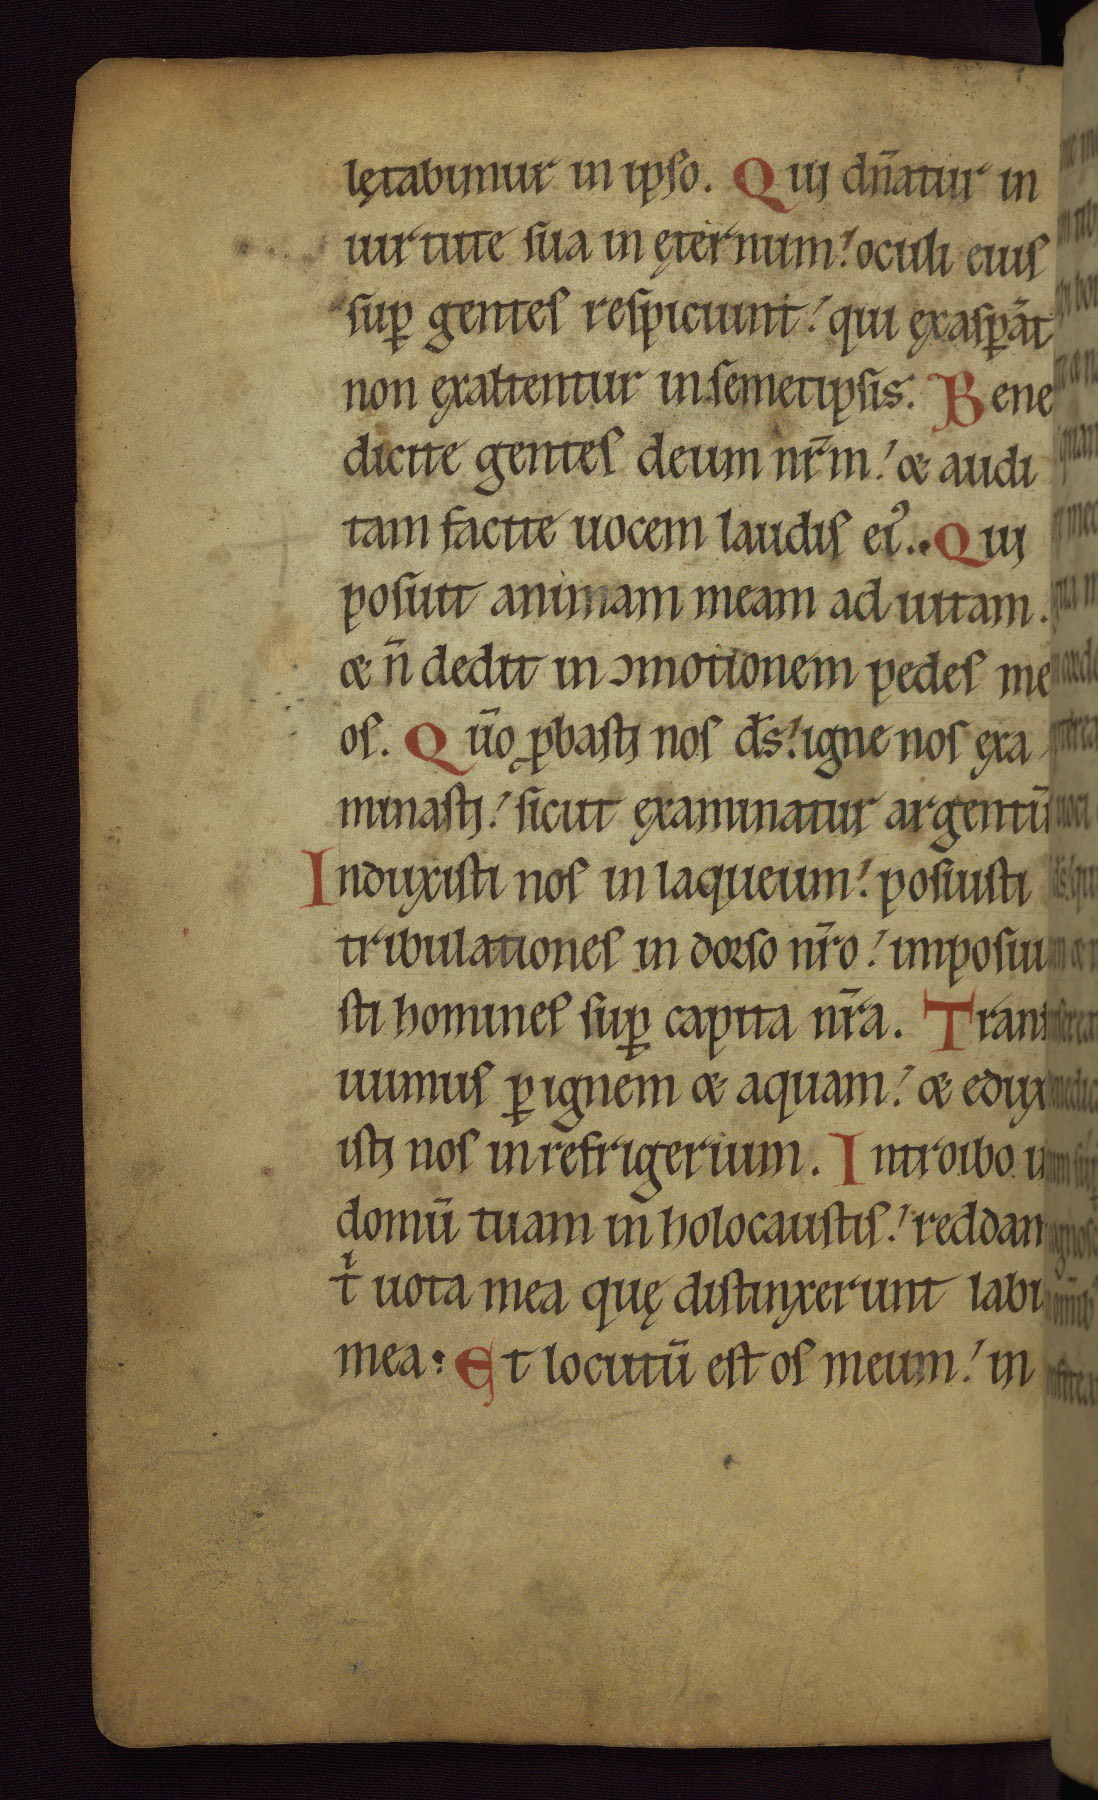 lętabimur in ipso. Qui dn̄atur in
uirtute sua in ęternum! oculi eius
sup̱ gentes respiciunt! qui ęxasp̱āt
non ęxaltentur in semetipsis. Bene
dicite gentes deum nr̄m! & audi
tam facite uocem laudis ei᾽. Qui
posuit animam meam ad uitam.
& n̄ dedit in ɔmotionem pedes me
os. Qūo ꝓbasti nos ds̄! igne nos exa
minasti! sicut ęxaminatur argentū
Induxisti nos in laqueum! posuisti
tribulationes in dorso nr̄o! imposui
sti homines sup̱ capita nr̄a. Trans
iuimus ꝑ ignem & aquam! & edux
isti nos in refrigerium. Introibo i
domū tuam in holocaustis! reddam
t̍ uota mea quę distinxerunt labi
mea: Et locutū est os meum! in